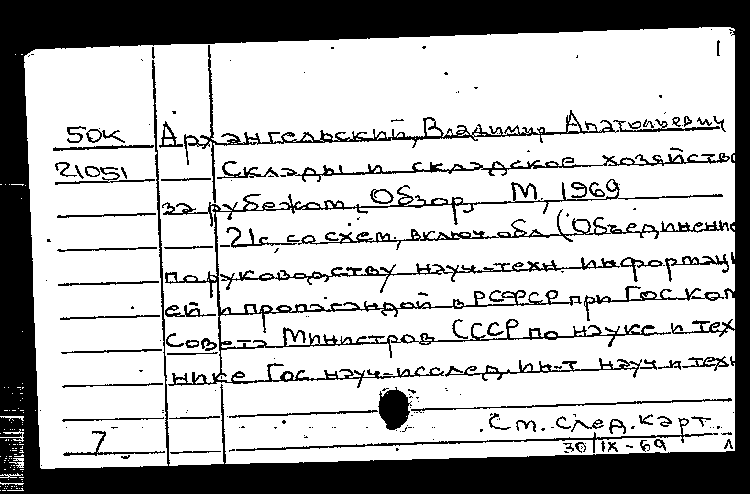 1
50к Архангельский, Владимир Анатольевич
21051 Склады и складское хозяйство
за рубежом. Обзор. М, 1969
21с, со схем, включ обл (Объединение
по руководству науч-техн. информаци
ей и пропагандой в РСФСР при Гос ком
Совета Министров СССР по науке и тех
нике Гос науч-исслед. ин-т науч и техн
См. след. карт.
7 30/IX-69